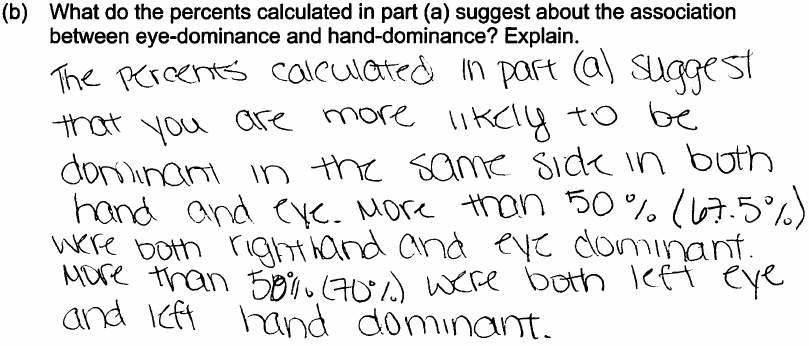 (b) What do the percents calculated in part (a) suggest about the association
between eye-dominance and hand-dominance? Explain.
The percents calculated in part (a) suggest
that you are more likely to be
dominant in the same side in both
hand and eye. More than 50% (67.5%)
were both right hand and eye dominant.
More than 50% (70%) were both left eye
and left hand dominant.